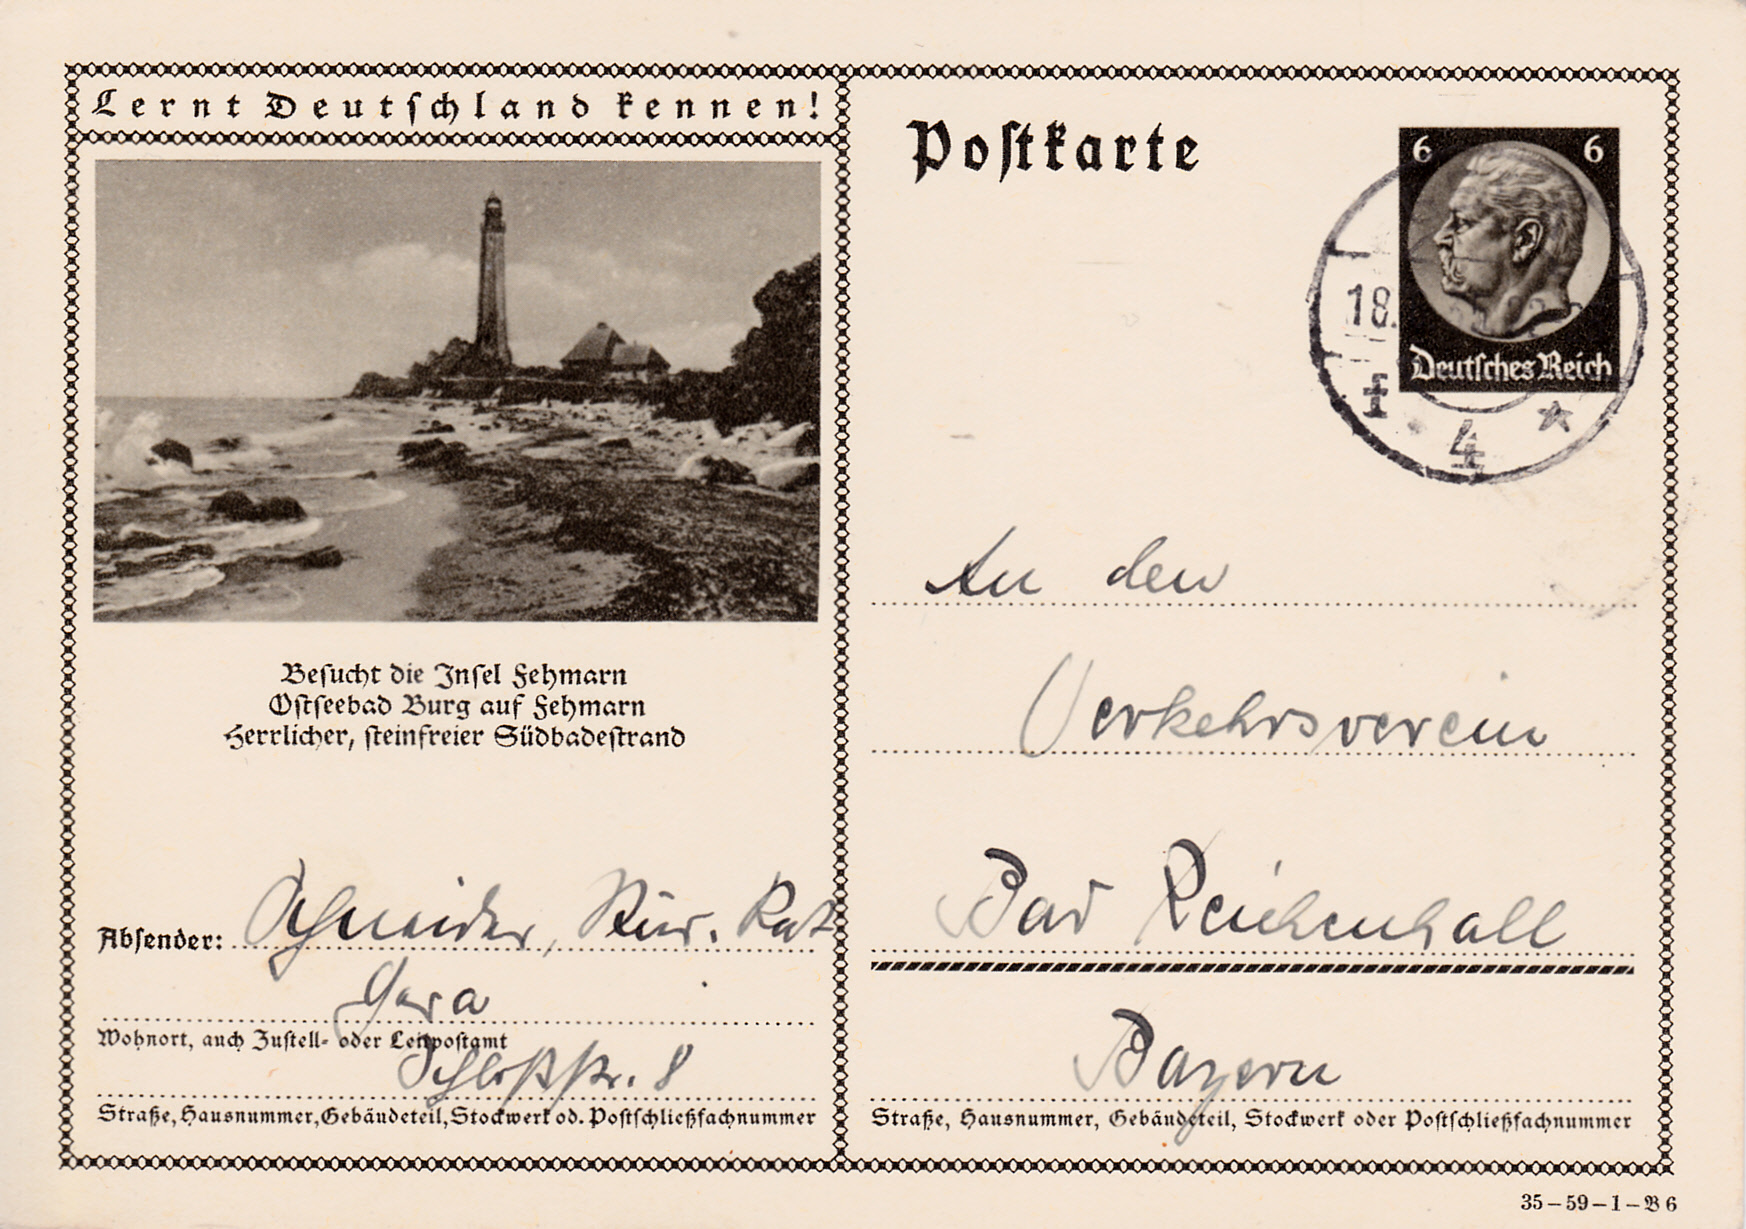 Lernt Deutschland kennen!
Besucht die Insel Fehmarn
Ostseebad Burg auf Fehmarn
Herrlicher, steinfreier Südbadestrand
Absender: Schneider, Stud. Rat
Gera
Wohnort, auch Zustell- oder Leitpostamt
Schloßstr. 8
Straße, Hausnummer, Gebäudeteil, Stockwerk od. Postschließfachnummer
Postkarte
6 6
Deutsches Reich
18.
4
An den
Verkehrsverein
Bad Reichenhall
Bayern
Straße, Hausnummer, Gebäudeteil, Stockwerk oder Postschließfachnummer
35–59–1–B6